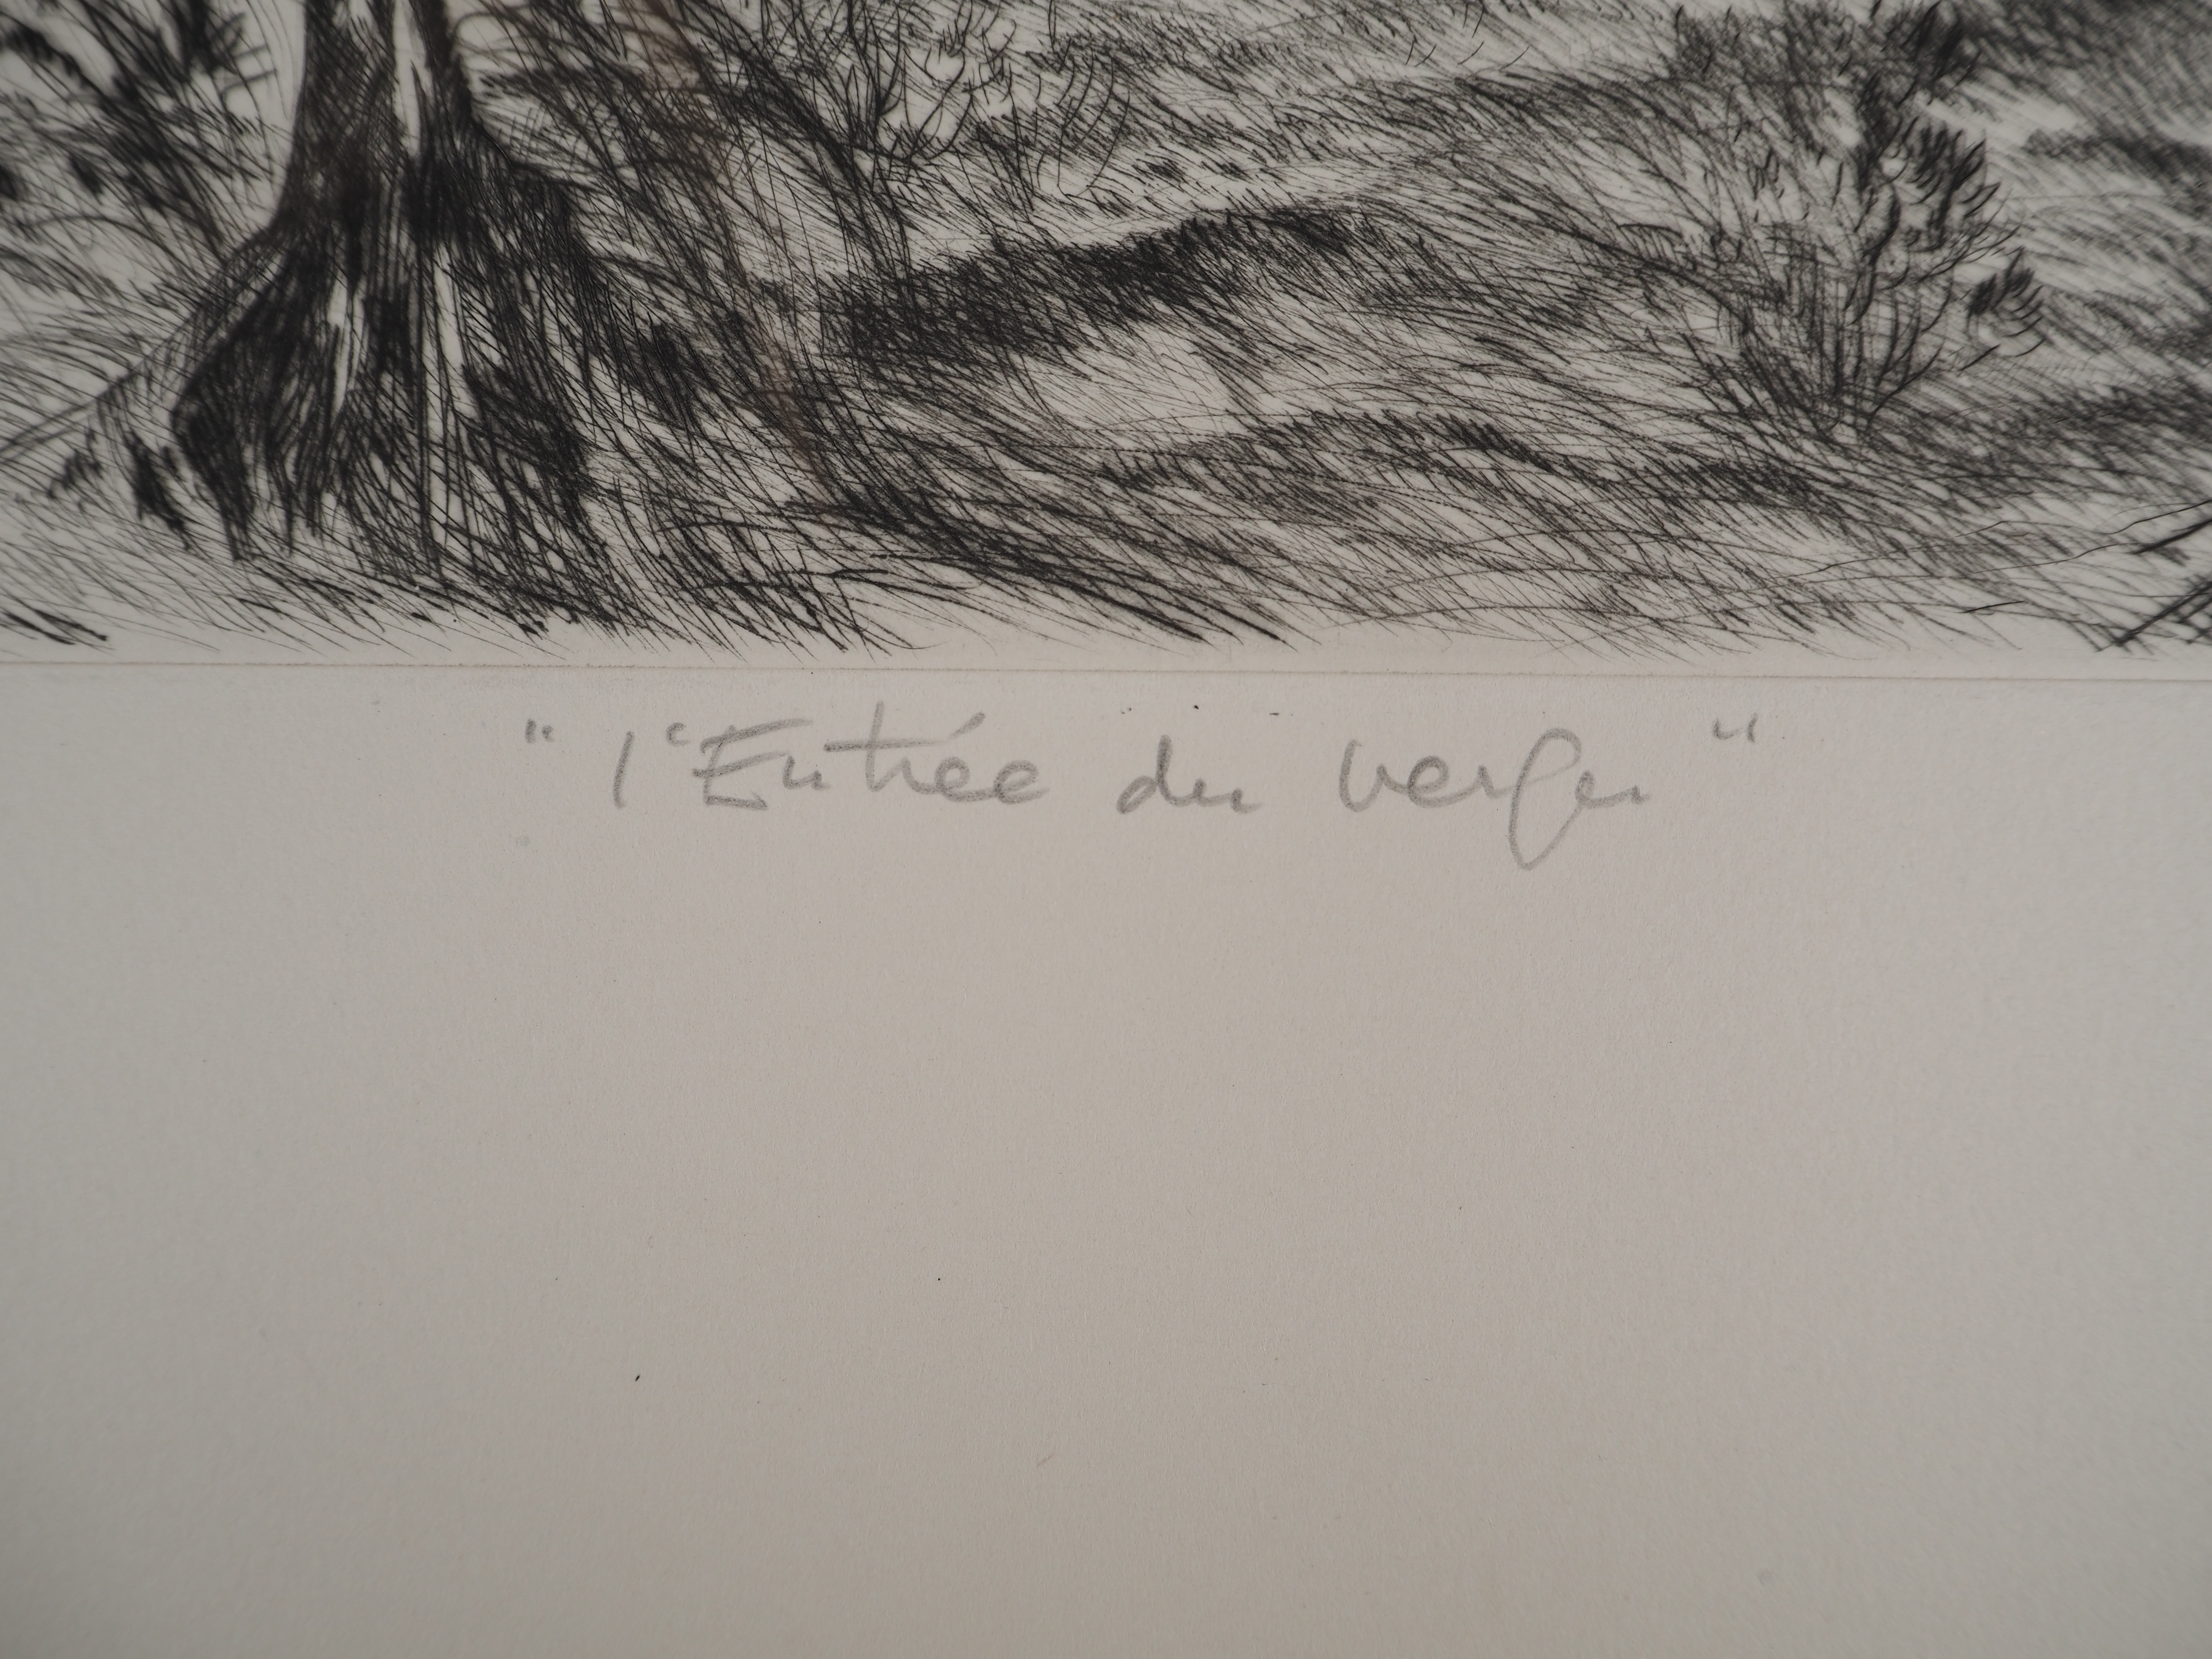 "l'Entrée du verger"